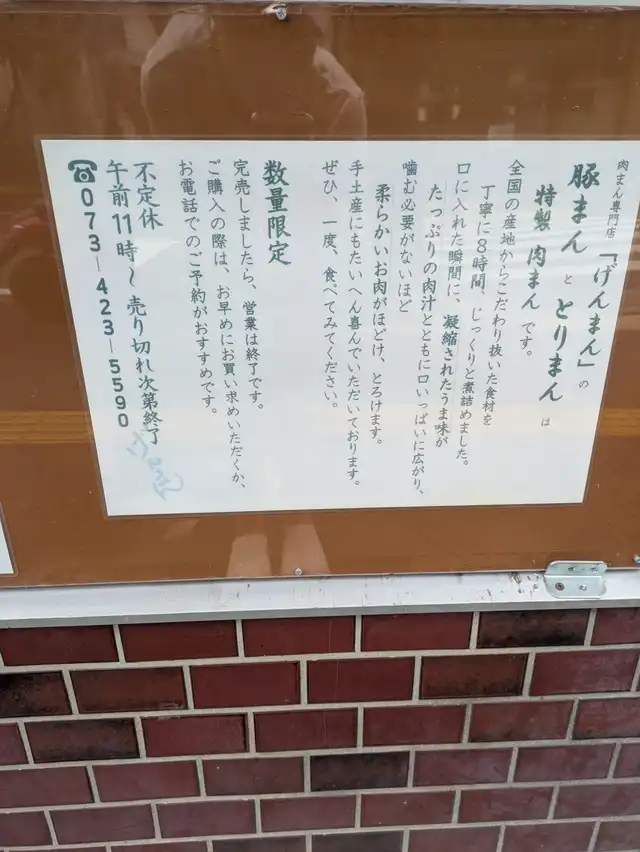 肉まん専門店「げんまん」の
豚まん と とりまん は
特製 肉まん です。
全国の産地からこだわり抜いた食材を
丁寧に8時間、じっくりと煮詰めました。
口に入れた瞬間に、凝縮されたうま味が
たっぷりの肉汁とともに口いっぱいに広がり、
噛む必要がないほど
柔らかいお肉がほどけ、とろけます。
手土産にもたいへん喜んでいただいております。
ぜひ、一度、食べてみてください。
数量限定
完売しましたら、営業は終了です。
ご購入の際は、お早めにお買い求めいただくか、
お電話でのご予約がおすすめです。
不定休
午前11時～売り切れ次第終了
☎073-423-5590